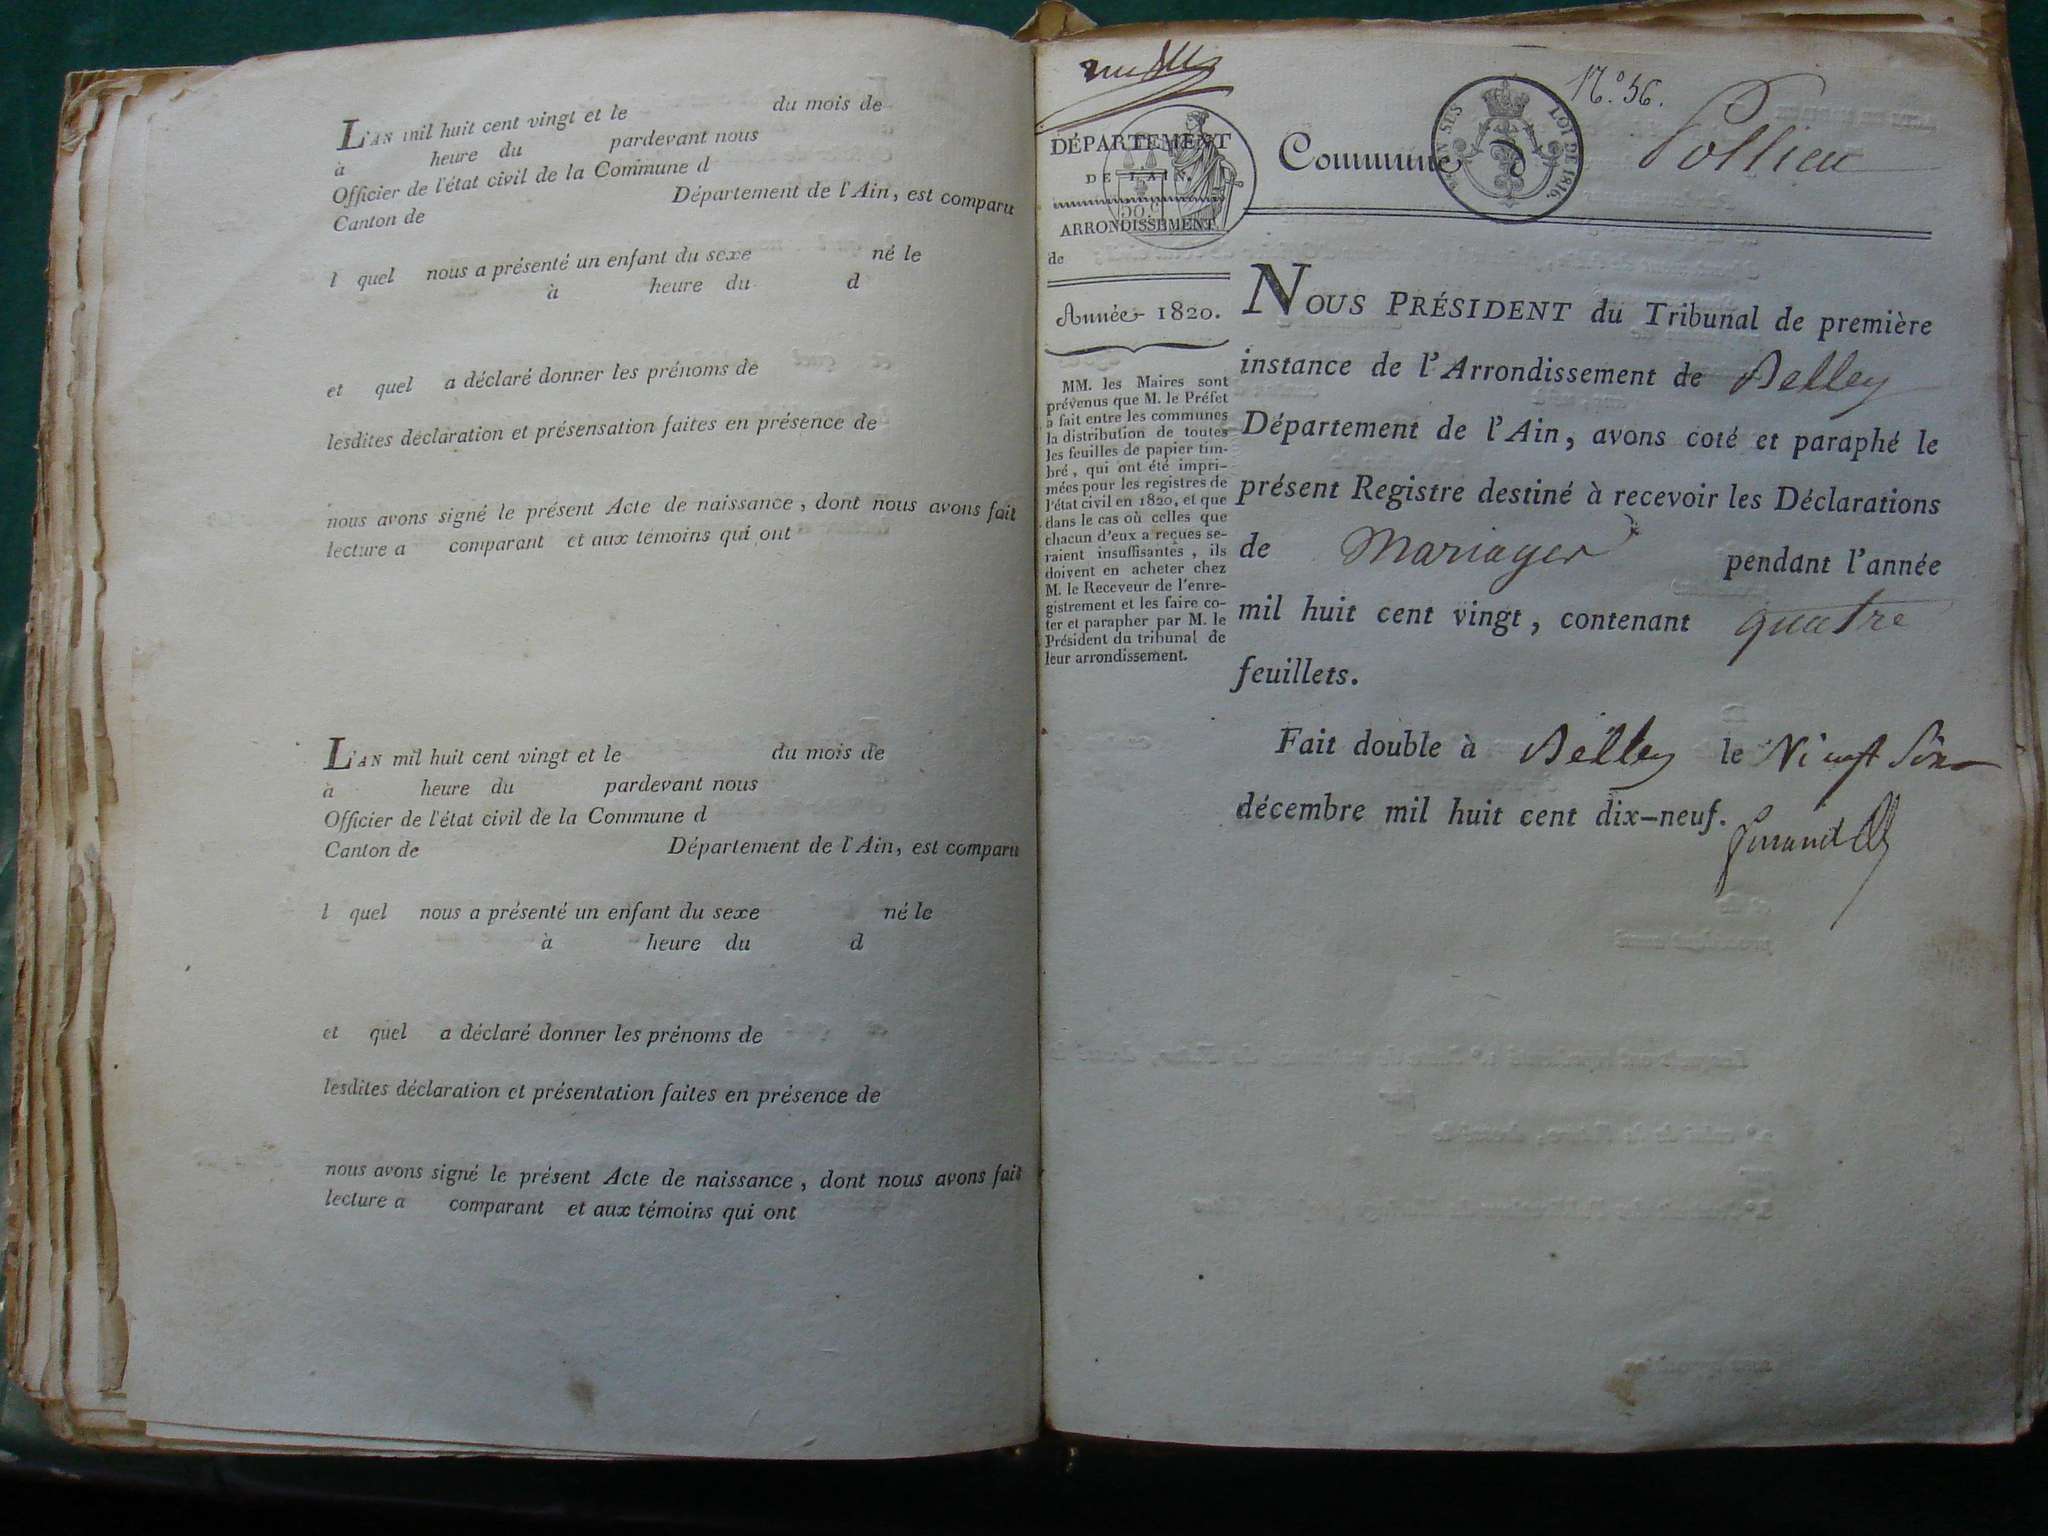 L'AN mil huit cent vingt et le du mois de
à heure du pardevant nous
Officier de l'état civil de la Commune d
Canton de Département de l'Ain, est comparu
l quel nous a présenté un enfant du sexe né le
à heure du d
et quel a déclaré donner les prénoms de
lesdites déclaration et présensation faites en présence de
nous avons signé le présent Acte de naissance, dont nous avons fait
lecture a comparant et aux témoins qui ont
L'AN mil huit cent vingt et le du mois de
à heure du pardevant nous
Officier de l'état civil de la Commune d
Canton de Département de l'Ain, est comparu
l quel nous a présenté un enfant du sexe né le
à heure du d
et quel a déclaré donner les prénoms de
lesdites déclaration et présentation faites en présence de
nous avons signé le présent Acte de naissance, dont nous avons fait
lecture a comparant et aux témoins qui ont
N.º 56.
DÉPARTEMENT
DE L'AIN.
ARRONDISSEMENT
de
Commune d Pollieu
LOI DE 1816.
Année 1820.
MM. les Maires sont
prévenus que M. le Préfet
a fait entre les communes
la distribution de toutes
les feuilles de papier tim-
bré, qui ont été impri-
mées pour les registres de
l'état civil en 1820, et que
dans le cas où celles que
chacun d'eux a reçues se-
raient insuffisantes, ils
doivent en acheter chez
M. le Receveur de l'enre-
gistrement et les faire co-
ter et parapher par M. le
Président du tribunal de
leur arrondissement.
NOUS PRÉSIDENT du Tribunal de première
instance de l'Arrondissement de Belley
Département de l'Ain, avons coté et paraphé le
présent Registre destiné à recevoir les Déclarations
de Mariages pendant l'année
mil huit cent vingt, contenant quatre
feuillets.
Fait double à Belley le Vingt
décembre mil huit cent dix-neuf.